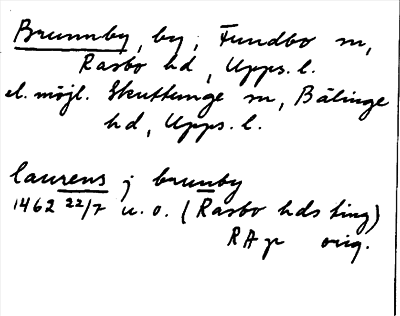 Brunnby, by, Fundbo sn,
Rasbo hd, Upps. l.
el. möjl. Skuttunge sn, Bälinge
hd, Upps. l.
laurens j brunby
1462 22/7 u. o. (Rasbo hds ting)
RAp orig.